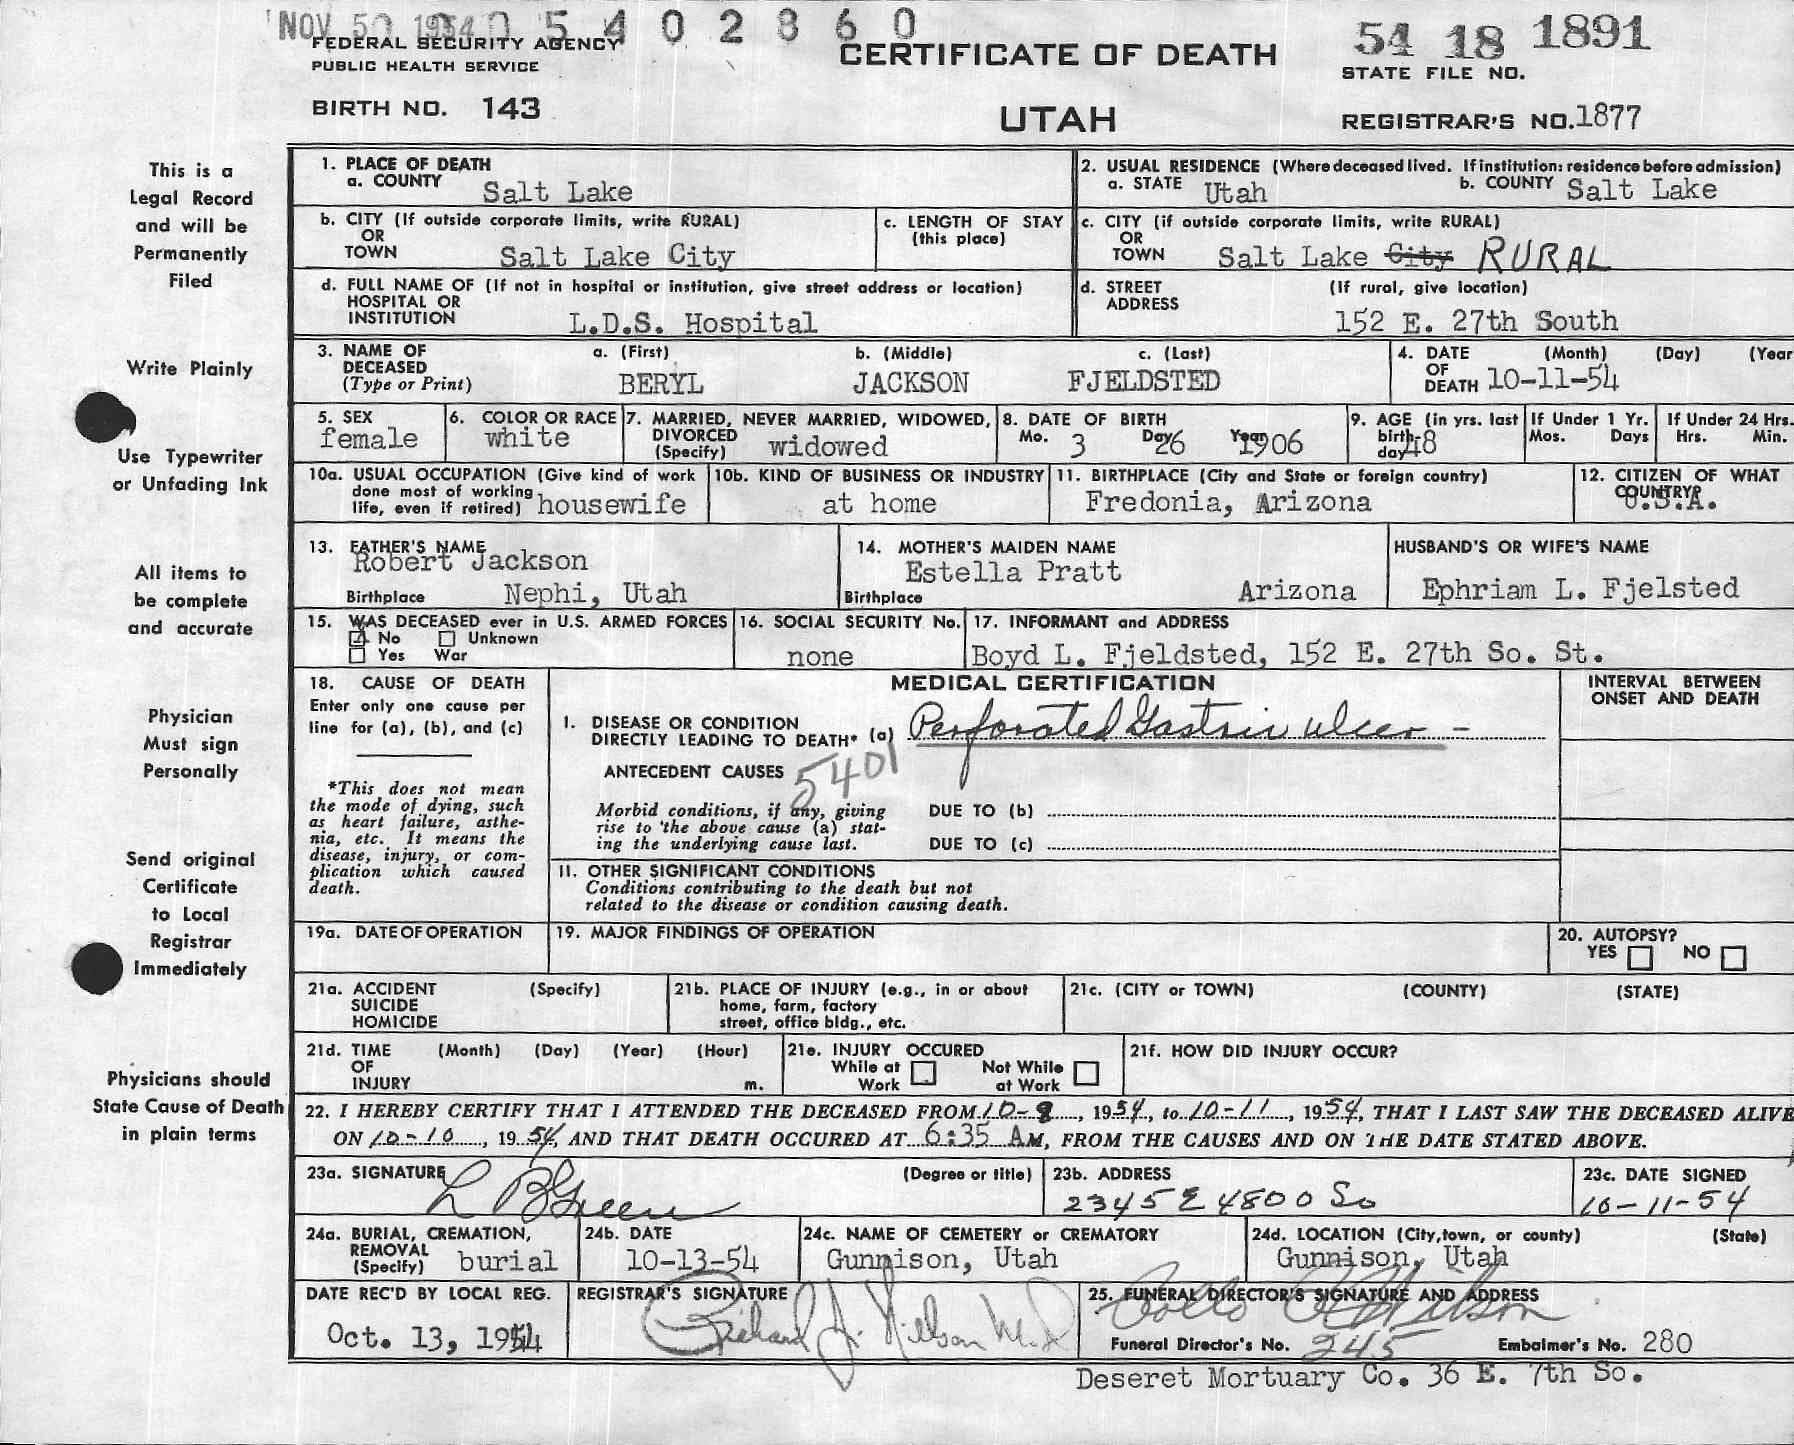 NOV 30 1954 0 5 4 0 2 3 6 0
54 18 1891
FEDERAL SECURITY AGENCY
PUBLIC HEALTH SERVICE
CERTIFICATE OF DEATH
STATE FILE NO.
BIRTH NO. 143
UTAH
REGISTRAR'S NO. 1877
This is a
Legal Record
and will be
Permanently
Filed
Write Plainly
Use Typewriter
or Unfading Ink
All items to
be complete
and accurate
Physician
Must sign
Personally
Send original
Certificate
to Local
Registrar
Immediately
Physicians should
State Cause of Death
in plain terms
1. PLACE OF DEATH
a. COUNTY Salt Lake
2. USUAL RESIDENCE (Where deceased lived. If institution: residence before admission)
a. STATE Utah b. COUNTY Salt Lake
b. CITY (If outside corporate limits, write RURAL)
OR
TOWN Salt Lake City
c. LENGTH OF STAY
(this place)
c. CITY (if outside corporate limits, write RURAL)
OR
TOWN Salt Lake City RURAL
d. FULL NAME OF (If not in hospital or institution, give street address or location)
HOSPITAL OR
INSTITUTION L.D.S. Hospital
d. STREET (If rural, give location)
ADDRESS
152 E. 27th South
3. NAME OF a. (First) b. (Middle) c. (Last)
DECEASED
(Type or Print) BERYL JACKSON FJELDSTED
4. DATE (Month) (Day) (Year
OF
DEATH 10-11-54
5. SEX
female
6. COLOR OR RACE
white
7. MARRIED, NEVER MARRIED, WIDOWED,
DIVORCED
(Specify) widowed
8. DATE OF BIRTH
Mo. 3 Day 26 Year 1906
9. AGE (in yrs. last
birth-
day) 48
If Under 1 Yr.
Mos. Days
If Under 24 Hrs.
Hrs. Min.
10a. USUAL OCCUPATION (Give kind of work
done most of working
life, even if retired) housewife
10b. KIND OF BUSINESS OR INDUSTRY
at home
11. BIRTHPLACE (City and State or foreign country)
Fredonia, Arizona
12. CITIZEN OF WHAT
COUNTRY?
U.S.A.
13. FATHER'S NAME
Robert Jackson
Birthplace Nephi, Utah
14. MOTHER'S MAIDEN NAME
Estella Pratt
Birthplace Arizona
HUSBAND'S OR WIFE'S NAME
Ephriam L. Fjelsted
15. WAS DECEASED ever in U.S. ARMED FORCES
No Unknown
Yes War
16. SOCIAL SECURITY No.
none
17. INFORMANT and ADDRESS
Boyd L. Fjeldsted, 152 E. 27th So. St.
18. CAUSE OF DEATH
Enter only one cause per
line for (a), (b), and (c)
*This does not mean
the mode of dying, such
as heart failure, asthe-
nia, etc. It means the
disease, injury, or com-
plication which caused
death.
MEDICAL CERTIFICATION
INTERVAL BETWEEN
ONSET AND DEATH
I. DISEASE OR CONDITION
DIRECTLY LEADING TO DEATH* (a) Perforated Gastric ulcer -
ANTECEDENT CAUSES 5401
Morbid conditions, if any, giving
rise to the above cause (a) stat-
ing the underlying cause last.
DUE TO (b)
DUE TO (c)
II. OTHER SIGNIFICANT CONDITIONS
Conditions contributing to the death but not
related to the disease or condition causing death.
19a. DATE OF OPERATION
19. MAJOR FINDINGS OF OPERATION
20. AUTOPSY?
YES NO
21a. ACCIDENT (Specify)
SUICIDE
HOMICIDE
21b. PLACE OF INJURY (e.g., in or about
home, farm, factory
street, office bldg., etc.
21c. (CITY or TOWN) (COUNTY) (STATE)
21d. TIME (Month) (Day) (Year) (Hour)
OF
INJURY m.
21e. INJURY OCCURED
While at Not While
Work at Work
21f. HOW DID INJURY OCCUR?
22. I HEREBY CERTIFY THAT I ATTENDED THE DECEASED FROM 10-8, 1954, to 10-11, 1954, THAT I LAST SAW THE DECEASED ALIVE
ON 10-10, 1954, AND THAT DEATH OCCURED AT 6:35 AM, FROM THE CAUSES AND ON THE DATE STATED ABOVE.
23a. SIGNATURE (Degree or title)
L B Green
23b. ADDRESS
2345 E 4800 So
23c. DATE SIGNED
10-11-54
24a. BURIAL, CREMATION,
REMOVAL
(Specify) burial
24b. DATE
10-13-54
24c. NAME OF CEMETERY or CREMATORY
Gunnison, Utah
24d. LOCATION (City, town, or county) (State)
Gunnison, Utah
DATE REC'D BY LOCAL REG.
Oct. 13, 1954
REGISTRAR'S SIGNATURE
Richard J. Nillson M.D
25. FUNERAL DIRECTOR'S SIGNATURE AND ADDRESS
Funeral Director's No. 245 Embalmer's No. 280
Deseret Mortuary Co. 36 E. 7th So.